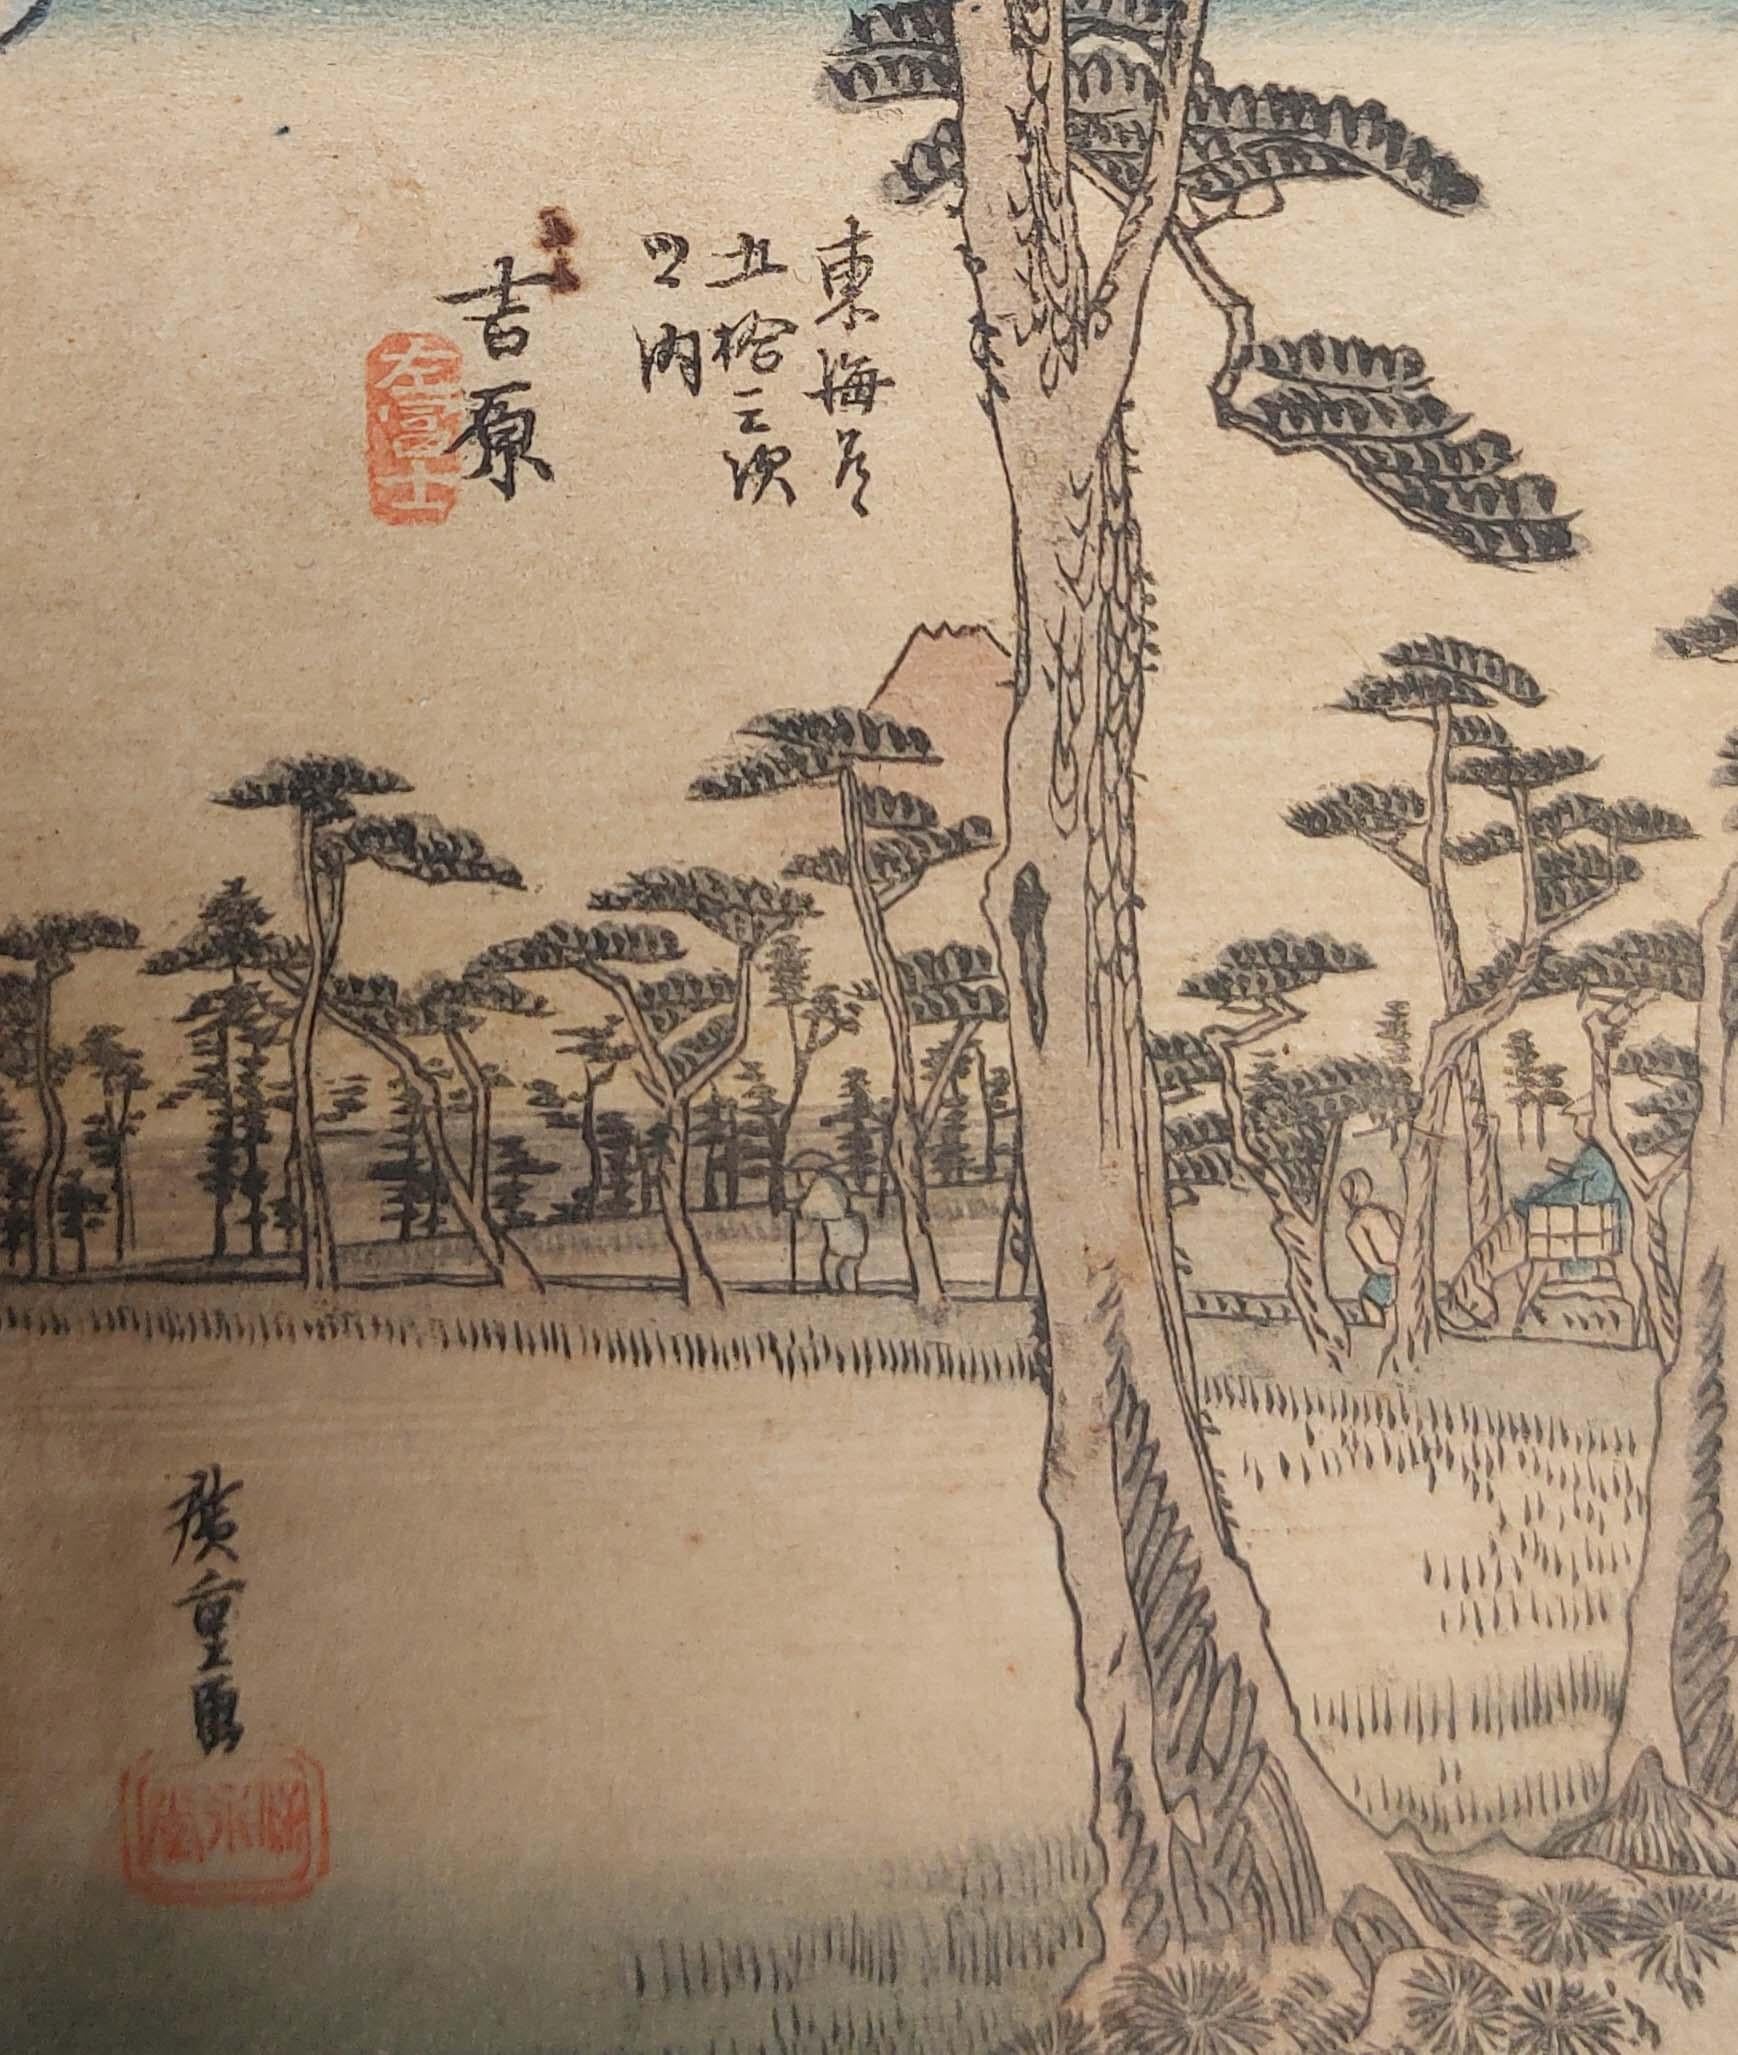 東海道
五拾三次
之内
吉原
左富士
廣重画